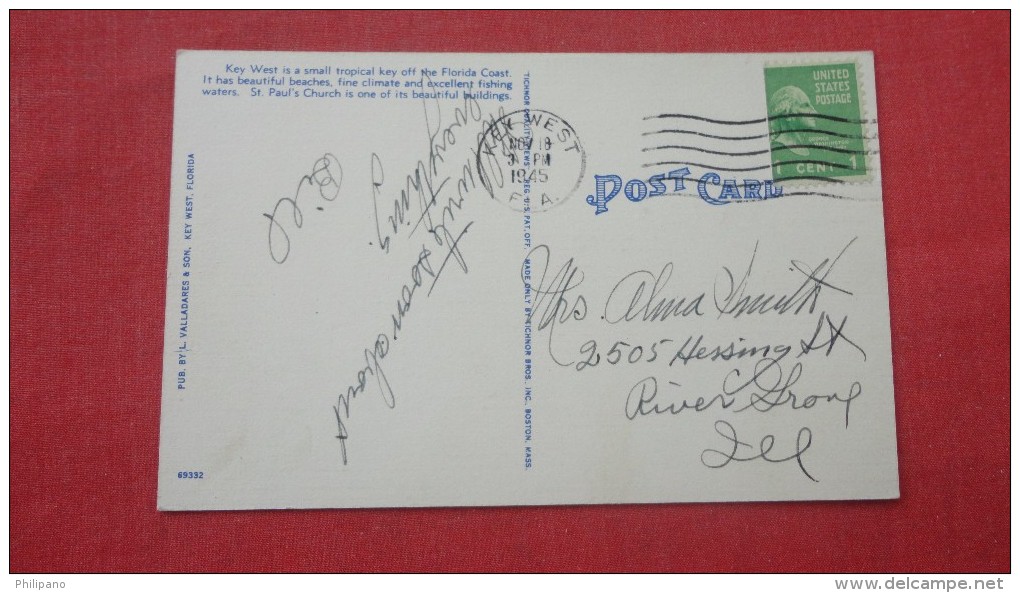 Key West is a small tropical key off the Florida Coast.
It has beautiful beaches, fine climate and excellent fishing
waters. St. Paul's Church is one of its beautiful buildings.
PUB. BY L. VALLADARES & SON, KEY WEST, FLORIDA
69332
Will write soon about
everything.
Bill
TICHNOR QUALITY VIEWS, REG. U.S. PAT. OFF. MADE ONLY BY TICHNOR BROS., INC., BOSTON, MASS.
KEY WEST
NOV 18
PM
1945
FLA.
UNITED
STATES
POSTAGE
1 CENT
POST CARD
Mrs. Alma Smith
2505 Hessing St
River Grove
Ill
Philipano
www.delcampe.net